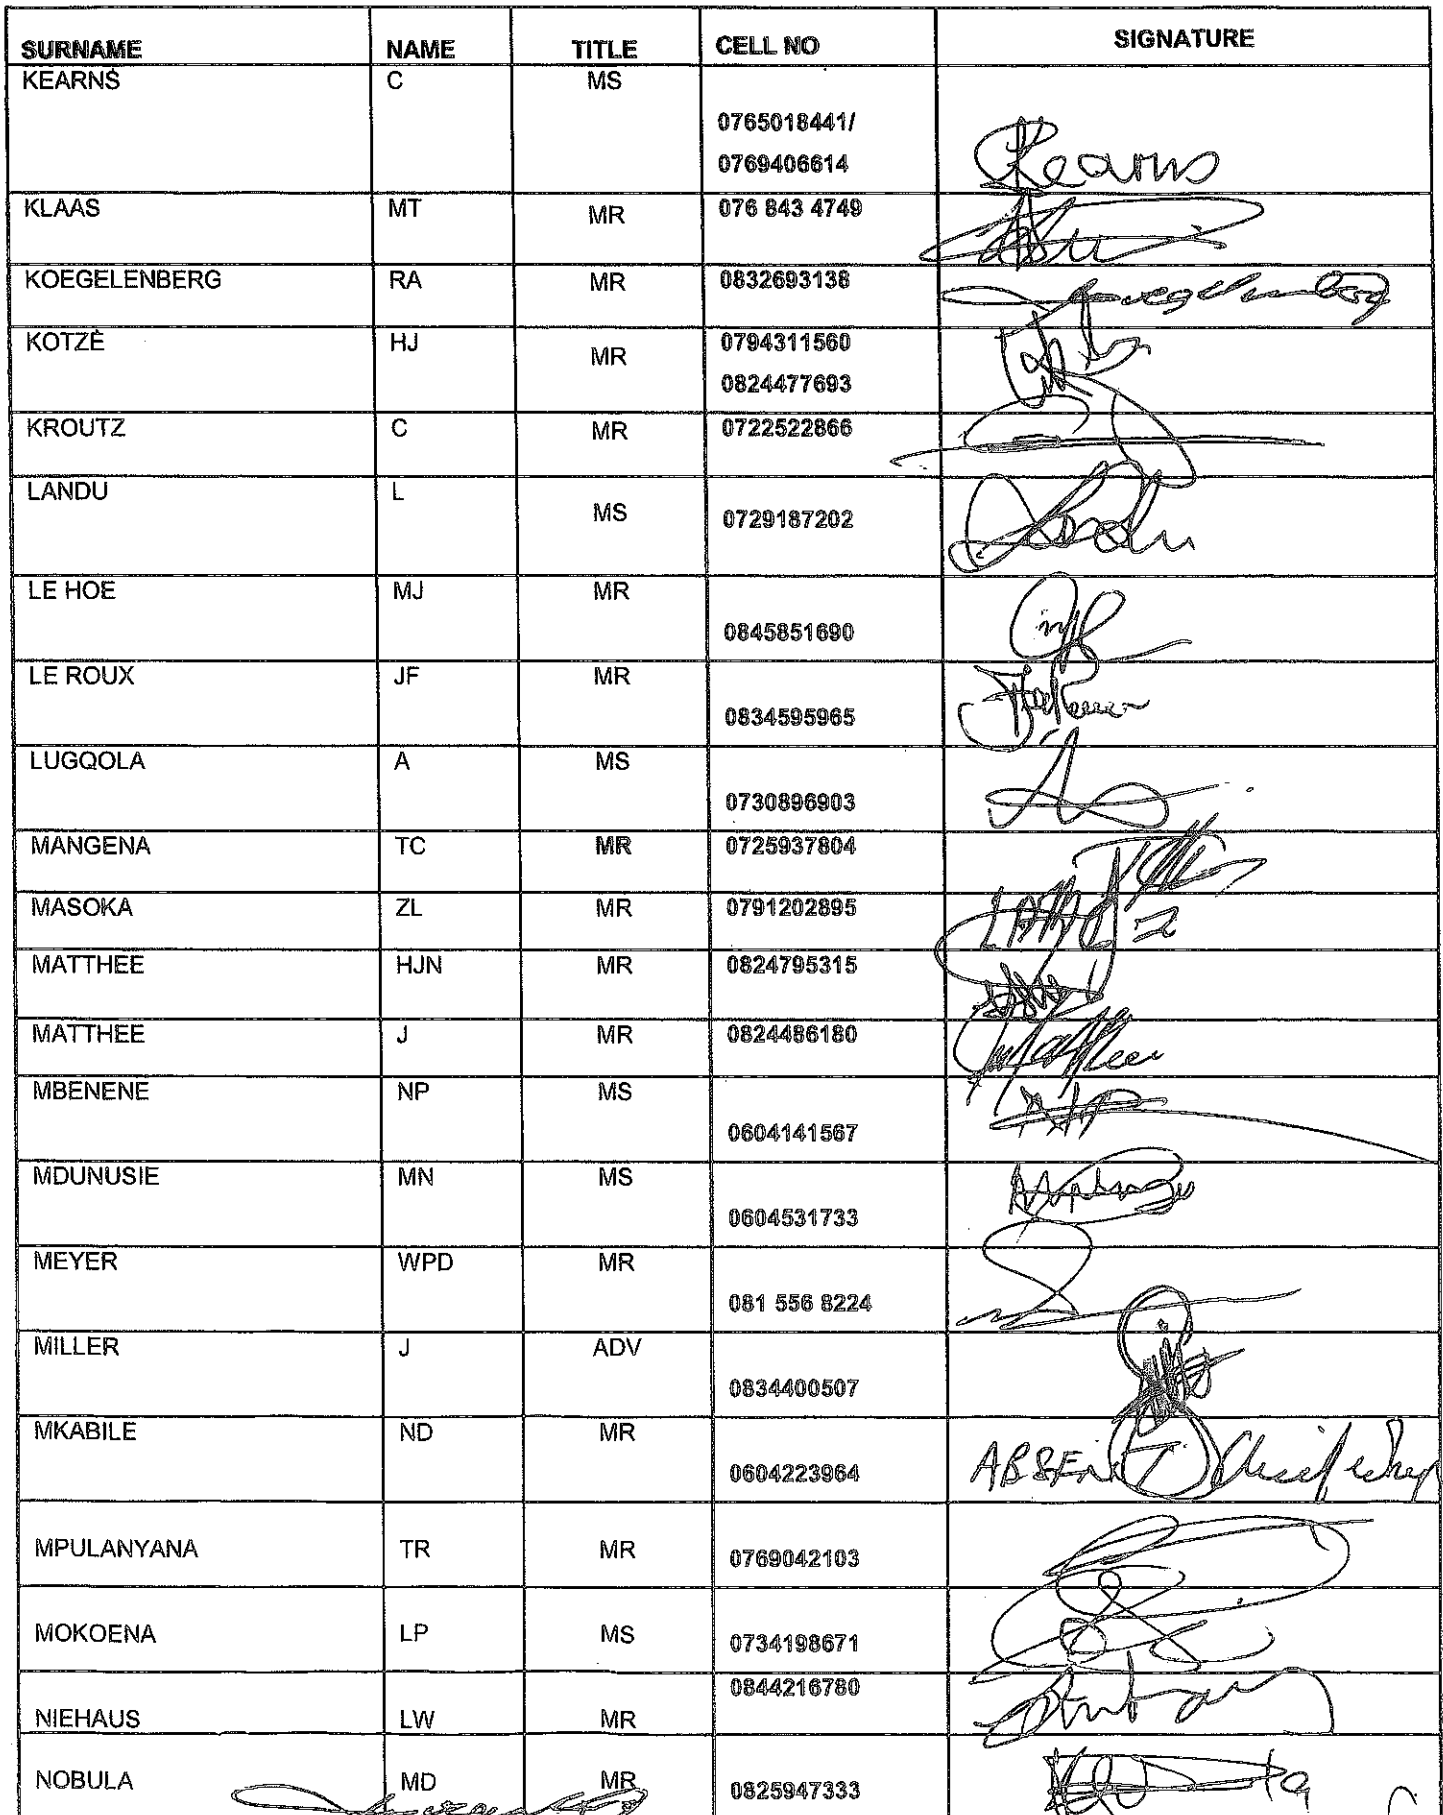 SURNAME NAME TITLE CELL NO SIGNATURE
KEARNS C MS
0765018441/
0769406614 Kearns
KLAAS MT MR 076 843 4749
KOEGELENBERG RA MR 0832693138
KOTZÈ HJ MR 0794311560
0824477693
KROUTZ C MR 0722522866
LANDU L MS 0729187202
LE HOE MJ MR
0845851690
LE ROUX JF MR
0834595965
LUGQOLA A MS
0730896903
MANGENA TC MR 0725937804
MASOKA ZL MR 0791202895
MATTHEE HJN MR 0824795315
MATTHEE J MR 0824486180
MBENENE NP MS
0604141567
MDUNUSIE MN MS
0604531733
MEYER WPD MR
081 556 8224
MILLER J ADV
0834400507
MKABILE ND MR
0604223964 ABSENT
MPULANYANA TR MR 0769042103
MOKOENA LP MS 0734198671
0844216780
NIEHAUS LW MR
NOBULA MD MR 0825947333